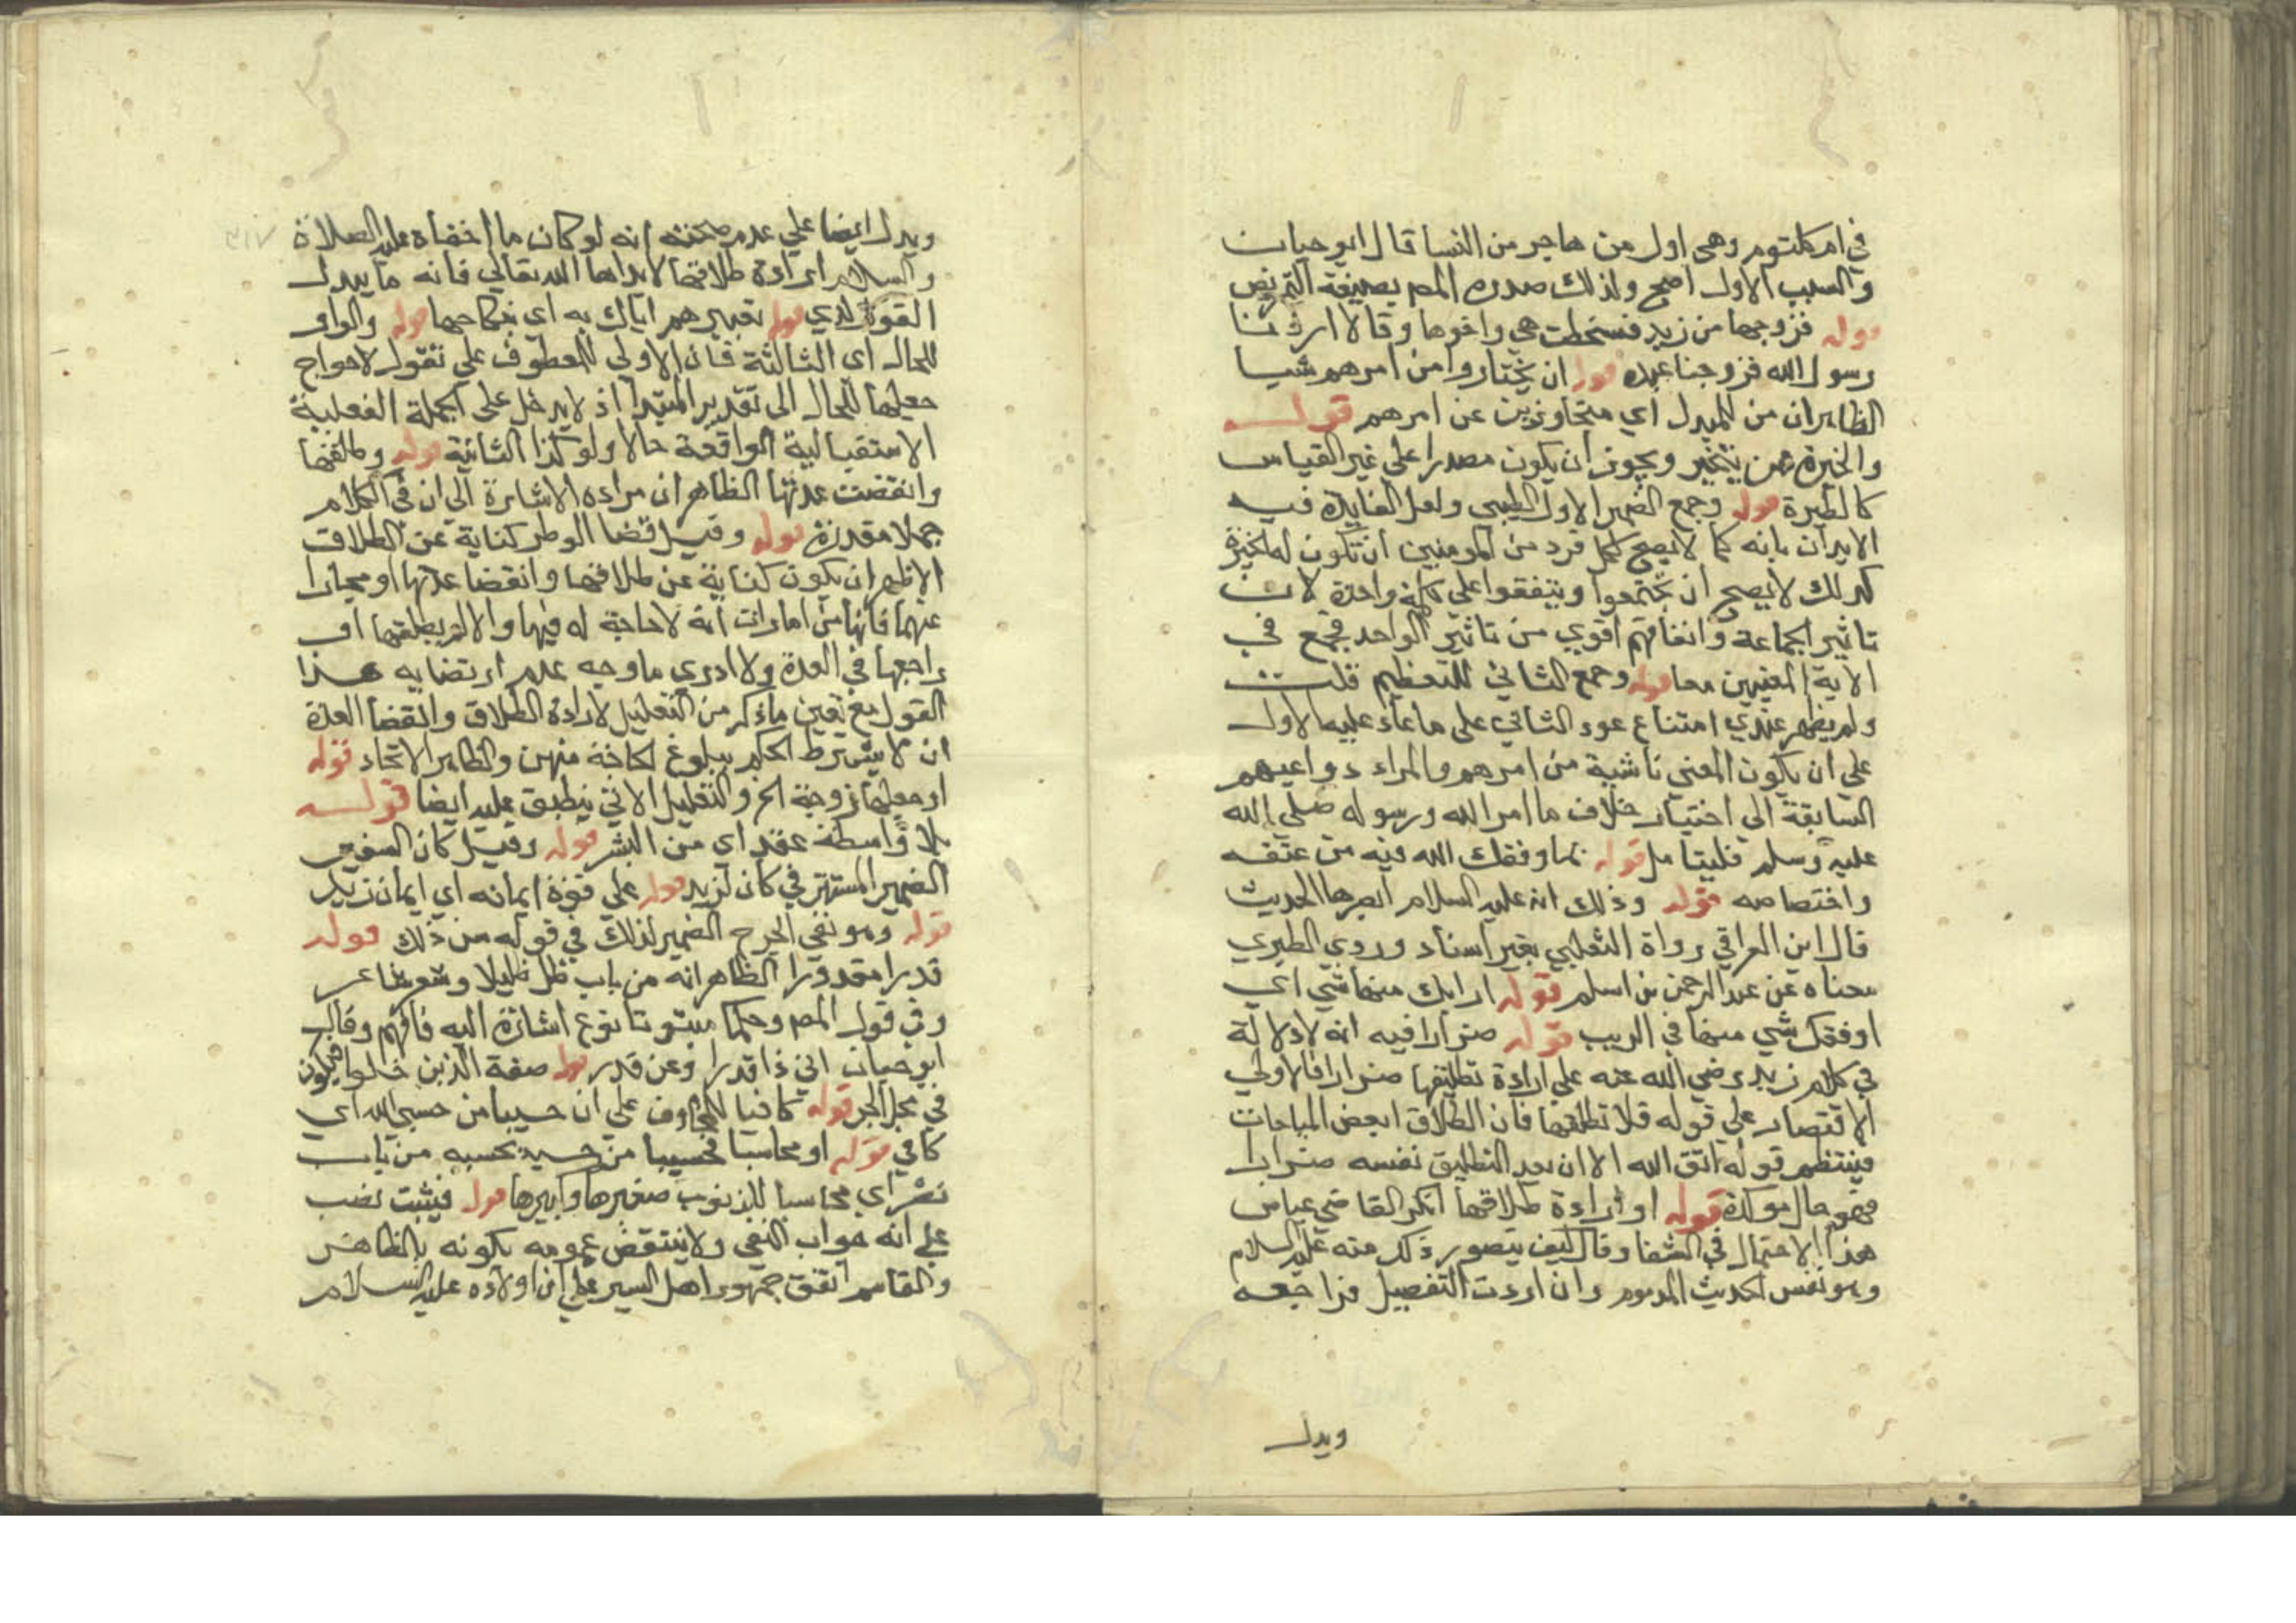 في ام كلثوم وهي اول من هاجر من النسا قال ابو حيان
والسبب الاول اصح ولذلك صدره المص بصيغة التمريض
قوله فزوجها من زيد فسخطت هي واخوها وقالا اردنا
رسول الله فزوجنا عبده قوله ان يختاروا من امرهم شيا
الظاهر ان من للبدل اي متجاوزين عن امرهم قوله
والخيرة من يتخير ويجوز ان يكون مصدرا علي غير القياس
كالطيرة قوله وجمع الضمير الاول الطيبي ولعل الفايدة فيه
الايذان بانه كما لا يصح لكل فرد من المومنين ان تكون له الخيرة
كذلك لا يصح ان يجتمعوا ويتفقوا علي كلمة واحدة لان
تاثير الجماعة واتفاقهم اقوي من تاثير الواحد فجمع في
الاية المعنيين معا قوله وجمع الثاني للتعظيم قلت
ولم يظهر عندي امتناع عود الثاني على ما عاد عليه الاول
علي ان يكون المعني ناشية من امرهم والمراد دواعيهم
السابقة الى اختيار خلاف ما امر الله ورسوله صلي الله
عليه وسلم فليتامل قوله بما وفقك الله فيه من عتقه
واختصاصه قوله وذلك انه عليه السلام ابصرها الحديث
قال ابن العراقي رواة الثعلبي بغير اسناد وروي الطبري
معناه عن عبد الرحمن بن اسلم قوله ارابك منها شي اي
اوفقك شي منها في الريب قوله ضرارا فيه انه لا دلالة
في كلام زيد رضي الله عنه علي ارادة تطليقها ضرارا فالاولي
الاقتصار علي قوله فلا تطلقها فان الطلاق ابغض المباحات
فينتظم قوله اتق الله الا ان يعد التطليق نفسه ضرارا
فهو حال موكدة قوله او ارادة طلاقها انكر القاضي عياض
هذا الاحتمال في الشفا وقال كيف يتصور ذلك منه عليه السلام
وهو نفس الحديث المذموم وان اردت التفصيل فراجعه
ويدل
ويدل ايضا علي عدم صحته انه لو كان ما اخفاه عليه الصلاة
والسلام ارادة طلاقها لابداها الله تعالي فانه ما يبدل
القول لدي قوله تعييرهم اياك به اي بنكاحها قوله والواو
للحال اي الثالثة فان الاولي للعطوف علي تقول لاحواج
جعلها للحال الى تقدير المبتدا اذ لا يدخل على الجملة الفعلية
الاستقبالية الواقعة حالا ولو كذا الثانية قوله وطلقها
وانقضت عدتها الظاهر ان مراده الاشارة الي ان في الكلام
جملا مقدرة قوله وقيل قضا الوطر كناية عن الطلاق
الاظهر ان يكون كناية عن طلاقها وانقضا عدتها او مجازا
عنهما فانهما من امارات انه لا حاجة له فيها والا لم يطلقها او
راجعها في العدة ولا ادري ما وجه عدم ارتضايه هذا
القول مع تعين ما ذكر من التعليل لارادة الطلاق وانقضا العدة
ان لا يشترط الحكم ببلوغ الحاجة منهن والظاهر الاتحاد قوله
او جعلها زوجته الخ والتعليل الاتي ينطبق عليه ايضا قوله
بلا واسطة عقد اي من البشر قوله وقيل كان السفير
الضمير المستتر في كان لزيد قوله علي قوة ايمانه اي ايمان زيد
قوله وهو نفي الحرج الضمير لذلك في قوله من ذلك قوله
قدرا مقدورا الظاهر انه من باب ظل ظليلا وشعر شاعر
وفي قول المص وحكما مبتوتا نوع اشارة اليه فافهم وقال
ابو حيان اي ذا قدر او عن قدر قوله صفة الذين خلوا فيكون
في محل الجر قوله كافيا للمخاوف علي ان حسيبا من حسبي الله اي
كافي قوله او محاسبا فحسيبا من حسبه يحسبه من باب
نصر اي محاسبا للذنوب صغيرها وكبيرها قوله فيثبت نصب
علي انه جواب النفي ولا ينتقض عمومه بكونه بالطاهر
والقاسم اتفق جمهور اهل السير علي ان اولاده عليه السلام